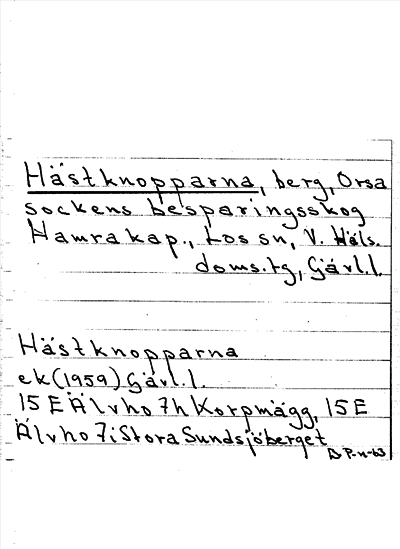 Hästknopparna, berg, Orsa
sockens besparingsskog
Hamra kap., Los sn, V. Häls.
doms.tg, Gävl.l.
Hästknopparna
ek (1959) Gävl.l.
15 E Älvho 7h Korpmägg, 15 E
Älvho 7i Stora Sundsjöberget